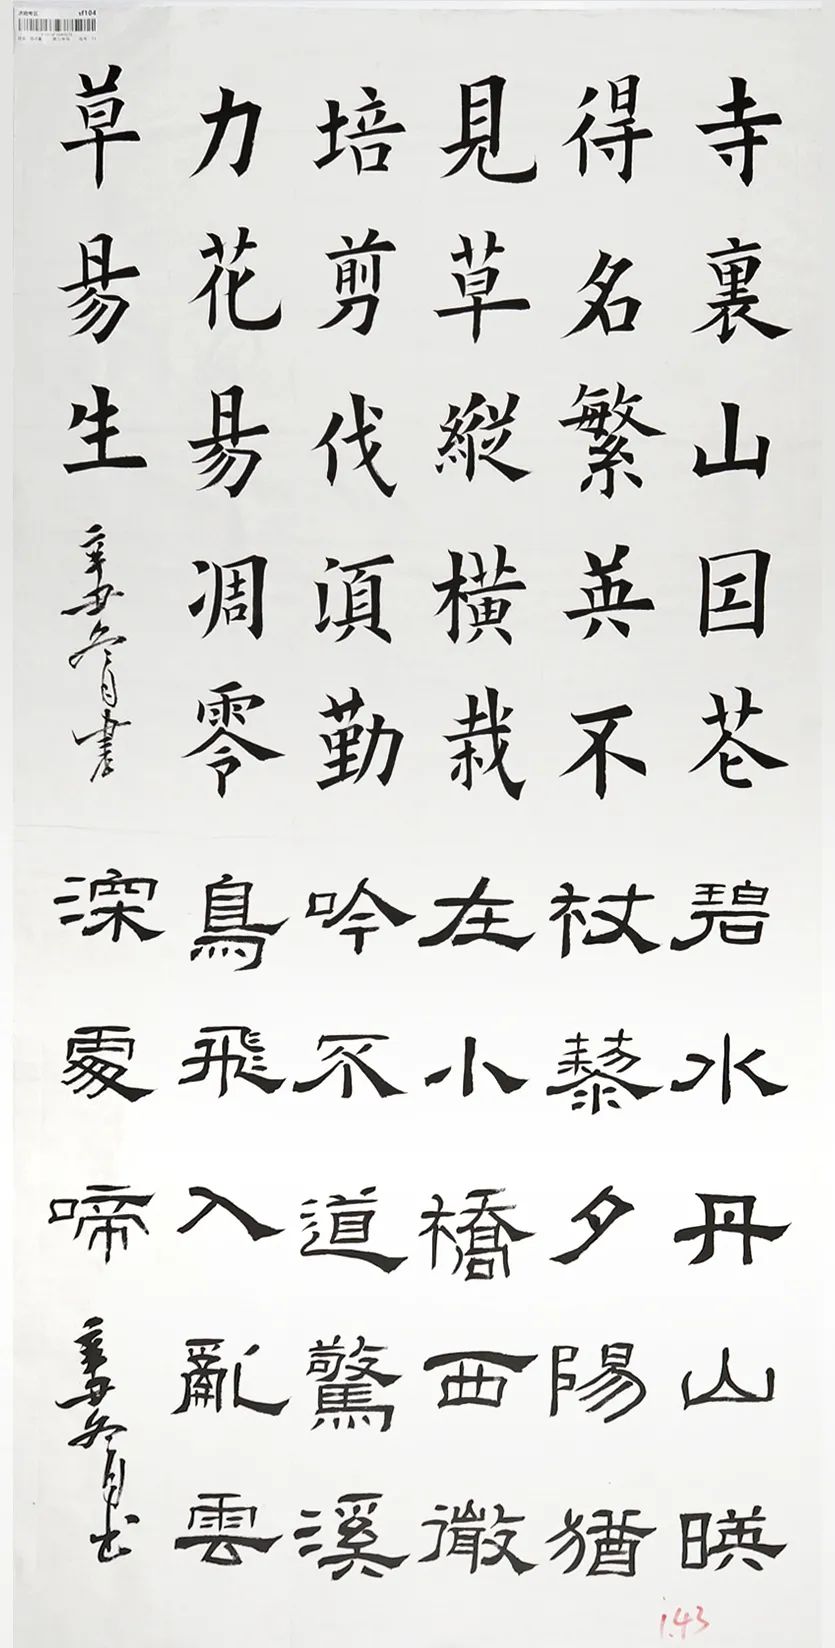 sf104
寺裏山囙芲
得名繁英不
見草縱橫栽
培剪伐須勤
力花昜凋零
草昜生
辛丑冬月書
碧水丹山暎
杖藜夕陽猶
在小橋西微
吟不道驚溪
鳥飛入亂雲
深處啼
辛丑冬月书
1.43